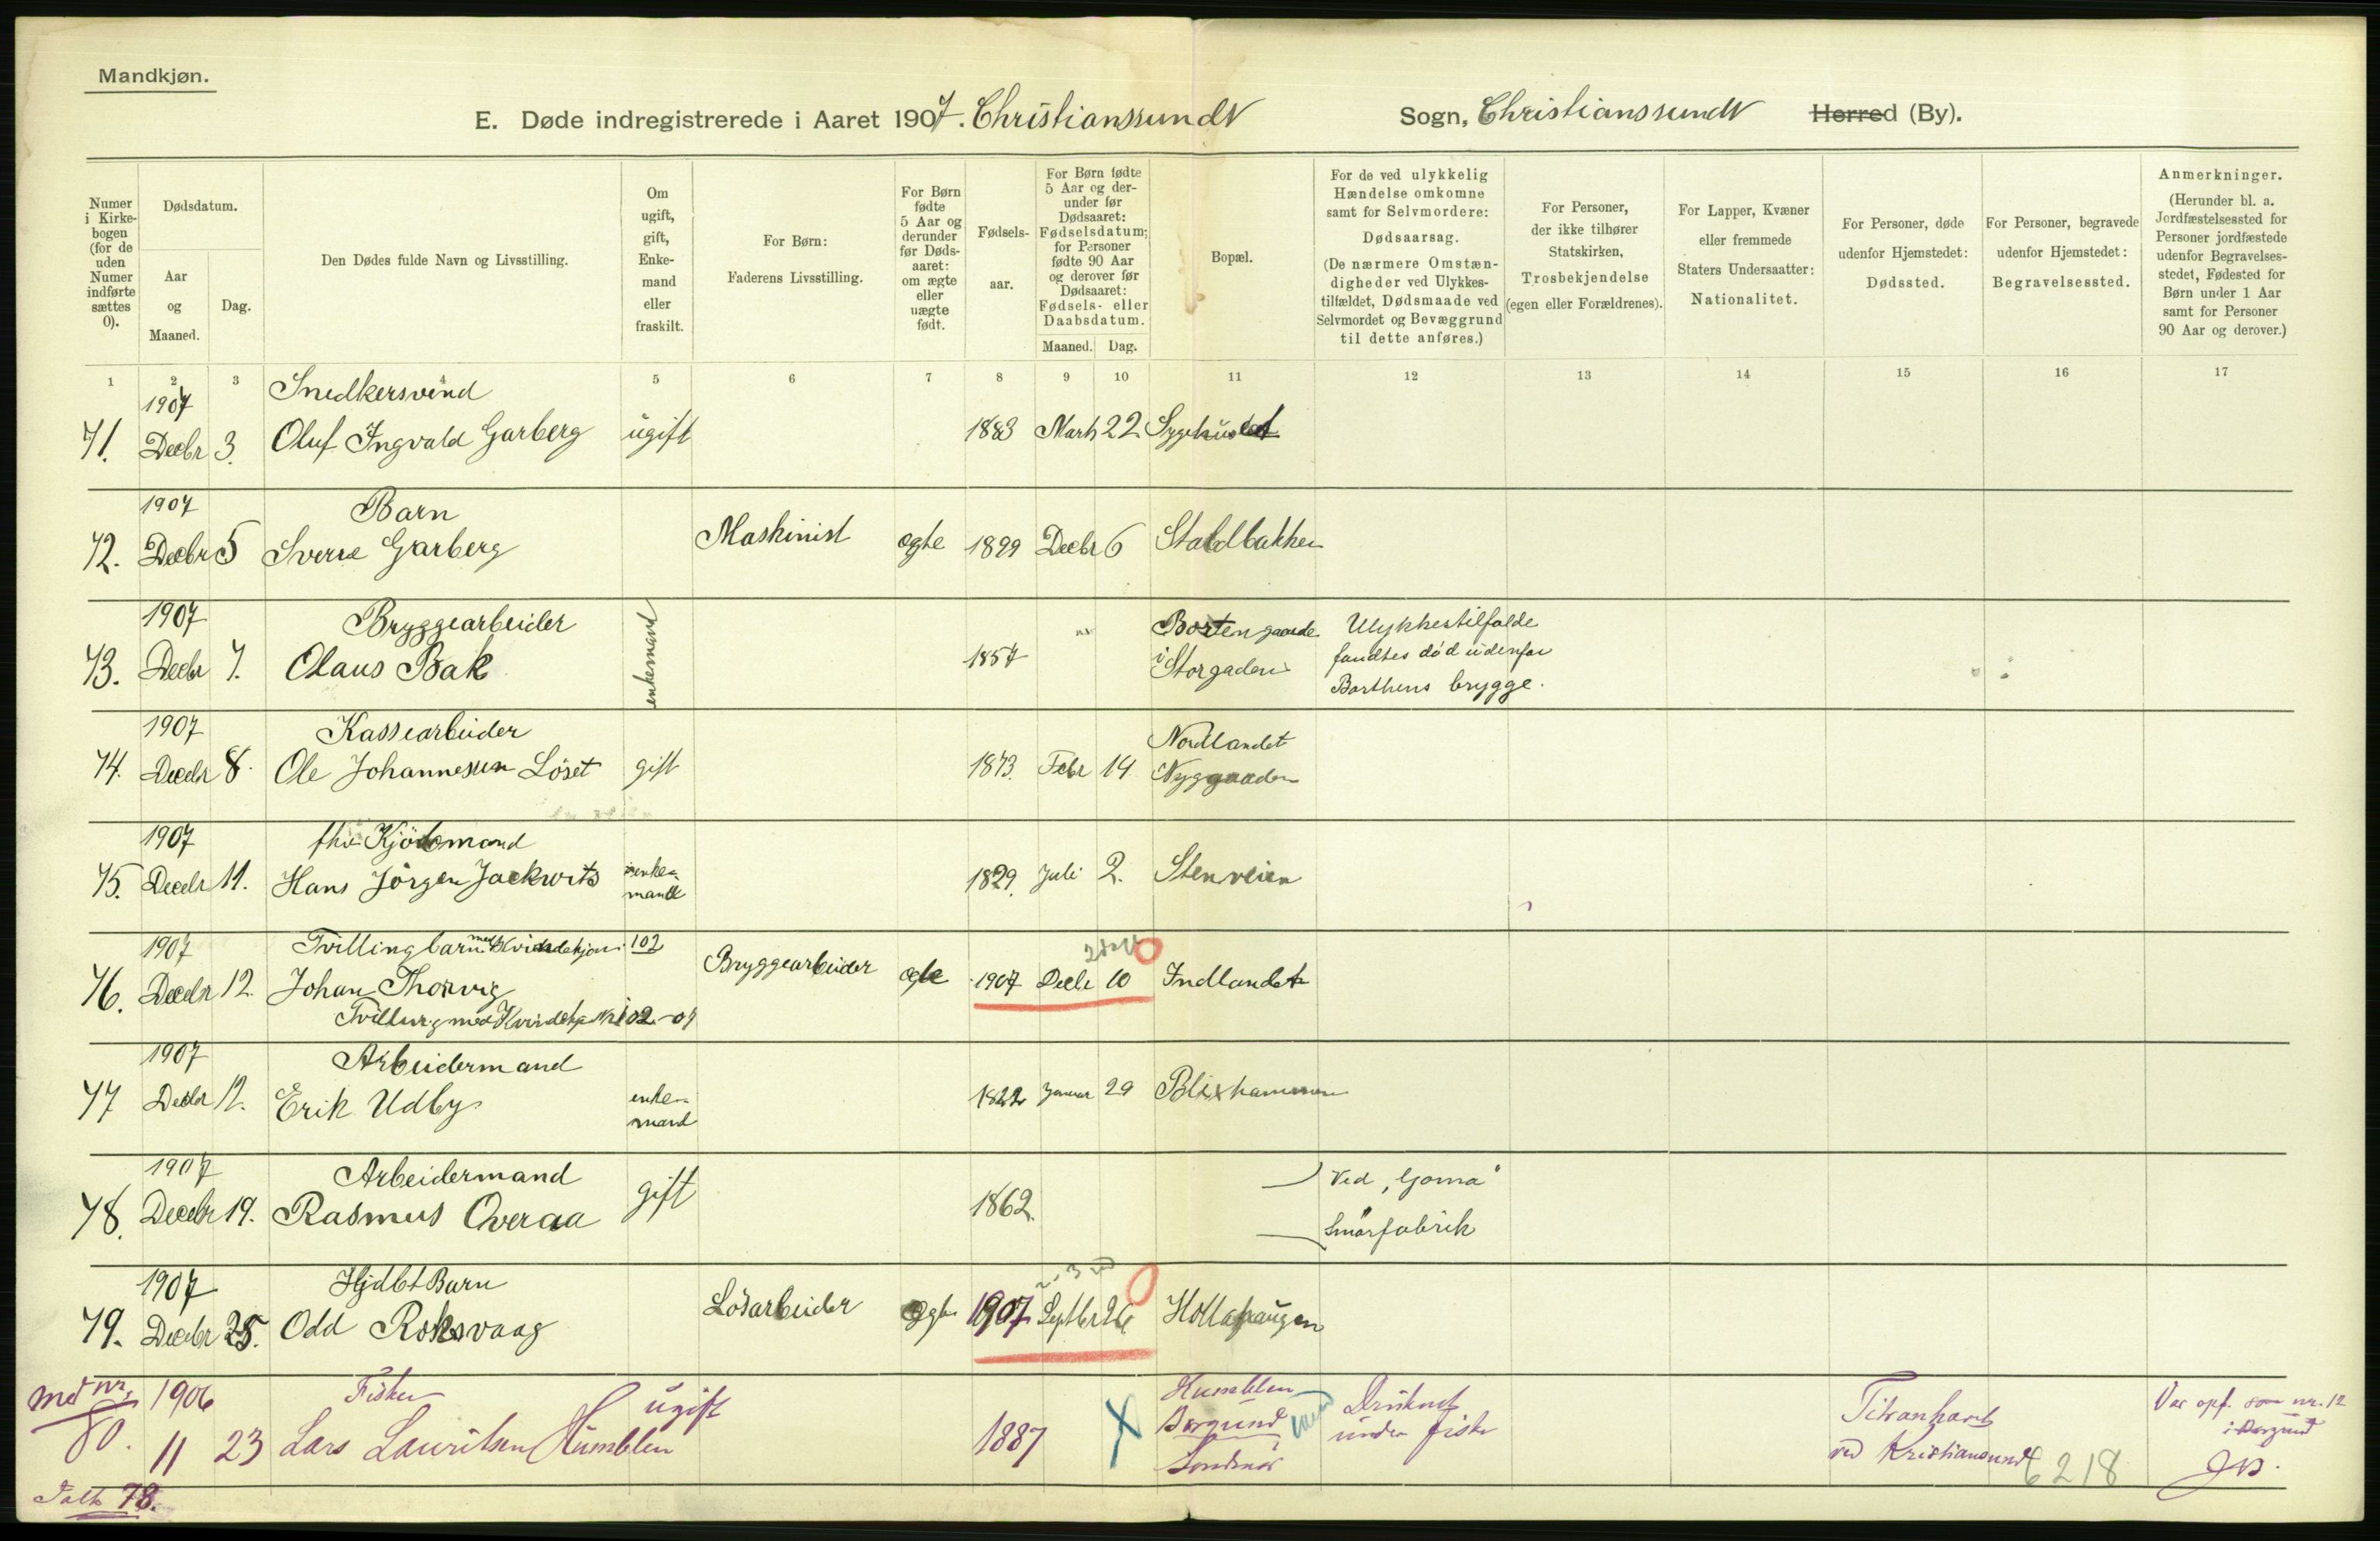 Mandkjøn.
E. Døde indregistrerede i Aaret 1907. Christianssund Sogn, Christianssund Herred (By).
Numer i Kirkebogen (for de uden Numer indførte sættes 0).
Dødsdatum.
Aar og Maaned.
Dag.
Den Dødes fulde Navn og Livsstilling.
Om ugift, gift, Enkemand eller fraskilt.
For Børn:
Faderens Livsstilling.
For Børn fødte 5 Aar og derunder før Dødsaaret: om ægte eller uægte født.
Fødselsaar.
For Børn fødte 5 Aar og derunder før Dødsaaret: Fødselsdatum; for Personer fødte 90 Aar og derover før Dødsaaret: Fødsels- eller Daabsdatum.
Maaned. Dag.
Bopæl.
For de ved ulykkelig Hændelse omkomne samt for Selvmordere:
Dødsaarsag.
(De nærmere Omstændigheder ved Ulykkestilfældet, Dødsmaade ved Selvmordet og Bevæggrund til dette anføres.)
For Personer, der ikke tilhører Statskirken,
Trosbekjendelse
(egen eller Forældrenes).
For Lapper, Kvæner eller fremmede Staters Undersaatter:
Nationalitet.
For Personer, døde udenfor Hjemstedet:
Dødssted.
For Personer, begravede udenfor Hjemstedet:
Begravelsessted.
Anmerkninger.
(Herunder bl. a. Jordfæstelsessted for Personer jordfæstede udenfor Begravelsesstedet, Fødested for Børn under 1 Aar samt for Personer 90 Aar og derover.)
1 2 3 4 5 6 7 8 9 10 11 12 13 14 15 16 17
1907 Snedkersvend
71. Decbr 3. Oluf Ingvald Garberg ugift 1883 Marts 22 Sygehuset
1907 Barn
72. Decbr 5 Sverre Garberg Maskinist ægte 1899 Decbr 6 Staldbakken
1907 Bryggearbeider enkemand Bortengaarde Ulykkestilfælde
73. Decbr 7. Olaus Bak 1857 i Storgaden fandtes død udenfor
Barthens brygge.
1907 Kassearbeider Nordlandet
74. Decbr 8. Ole Johannesen Löset gift 1873. Febr 14 Nyggaaden
1907 fhv Kjöbmand
75. Decbr 11. Hans Jörgen Jackwitz enkemand 1829. Juli 2. Stenveien
1907 Tvillingbarn med Kvindekjøn 102
76. Decbr 12. Johan Thorvig Bryggearbeider ægte 1907 Decbr 10 Indlandet
Tvilling med Kvindekj Nr 102-07
1907 Arbeidermand
77 Decbr 12. Erik Udby enkemand 1822 Januar 29 Blixhammeren
1907 Arbeidermand Ved "Goma"
78. Decebr 19. Rasmus Overaa gift 1862. Smørfabrik
1907 Hjdbt Barn
79. Decebr 25. Odd Roksvaag Lösarbeider ægte 1907 Septbr 26 Hollahaugen
med nr. 1906 Fisker ugift Humblen Druknet Titranhavet Var opf. som nr. 12
80. 11 23 Lars Lauritsen Humblen 1887 Borgund under fiske ved Kristiansund i Borgund
Söndmör 6218
Talt 78.